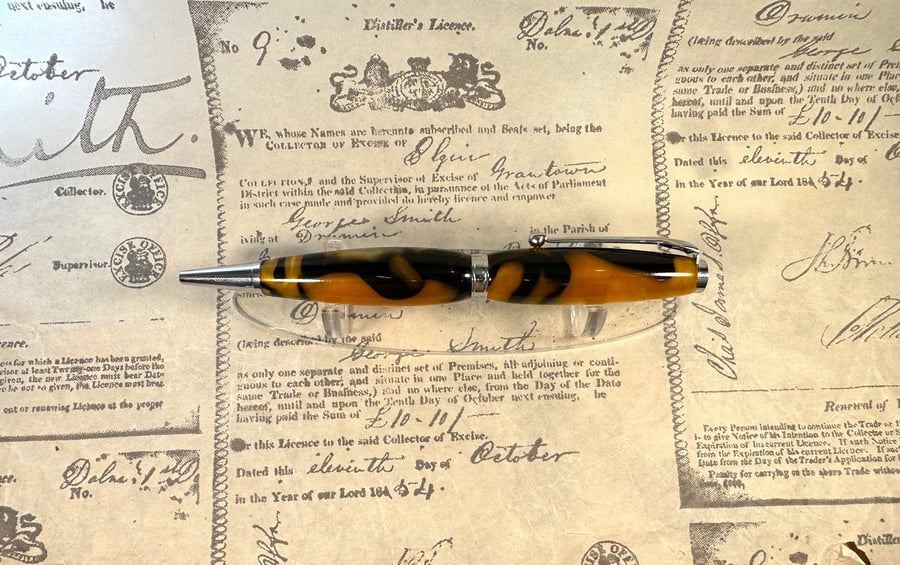 next ensuing, he
October
ith.
Collector.
EXCISE OFFICE
Supervisor.
EXCISE OFFICE
cence.
ss for which a Licence has been granted,
serve at least Twenty-one Days before the
given, the new Licence must bear Date
be not so given, the Licence must bear
out or renewing Licence at the proper
No.
Distiller's Licence.
No 9
No.
WE, whose Names are hereunto subscribed and Seals set, being the
COLLECTOR OF EXCISE OF Elgin
COLLECTION, and the Supervisor of Excise of Grantown
District within the said Collection, in pursuance of the Acts of Parliament
in such case made and provided do hereby licence and empower
George Smith
iving at Drumin in the Parish of
(being described by the said
George Smith
as only one separate and distinct set of Premises, all adjoining or conti-
guous to each other, and situate in one Place and held together for the
same Trade or Business,) and no where else, from the Day of the Date
hereof, until and upon the Tenth Day of October next ensuing, he
having paid the Sum of £10-10/-
for this Licence to the said Collector of Excise.
Dated this eleventh Day of October
in the Year of our Lord 184
Drumin
(being described by the said
George S
as only one separate and distinct set of Premi
guous to each other, and situate in one Place
same Trade or Business,) and no where else,
hereof, until and upon the Tenth Day of Octo
having paid the Sum of £10-10/-
for this Licence to the said Collector of Excise
Dated this eleventh Day of O
in the Year of our Lord 184
Renewal of
Every Person intending to continue the Trade or
is to give Notice of his Intention to the Collector or
Expiration of his current Licence. If such Notice
from the Expiration of his current Licence. If
from the Day of the Trader's Application for
Penalty for carrying on the above Trade without
£500,
Distiller
EXCISE OFFICE